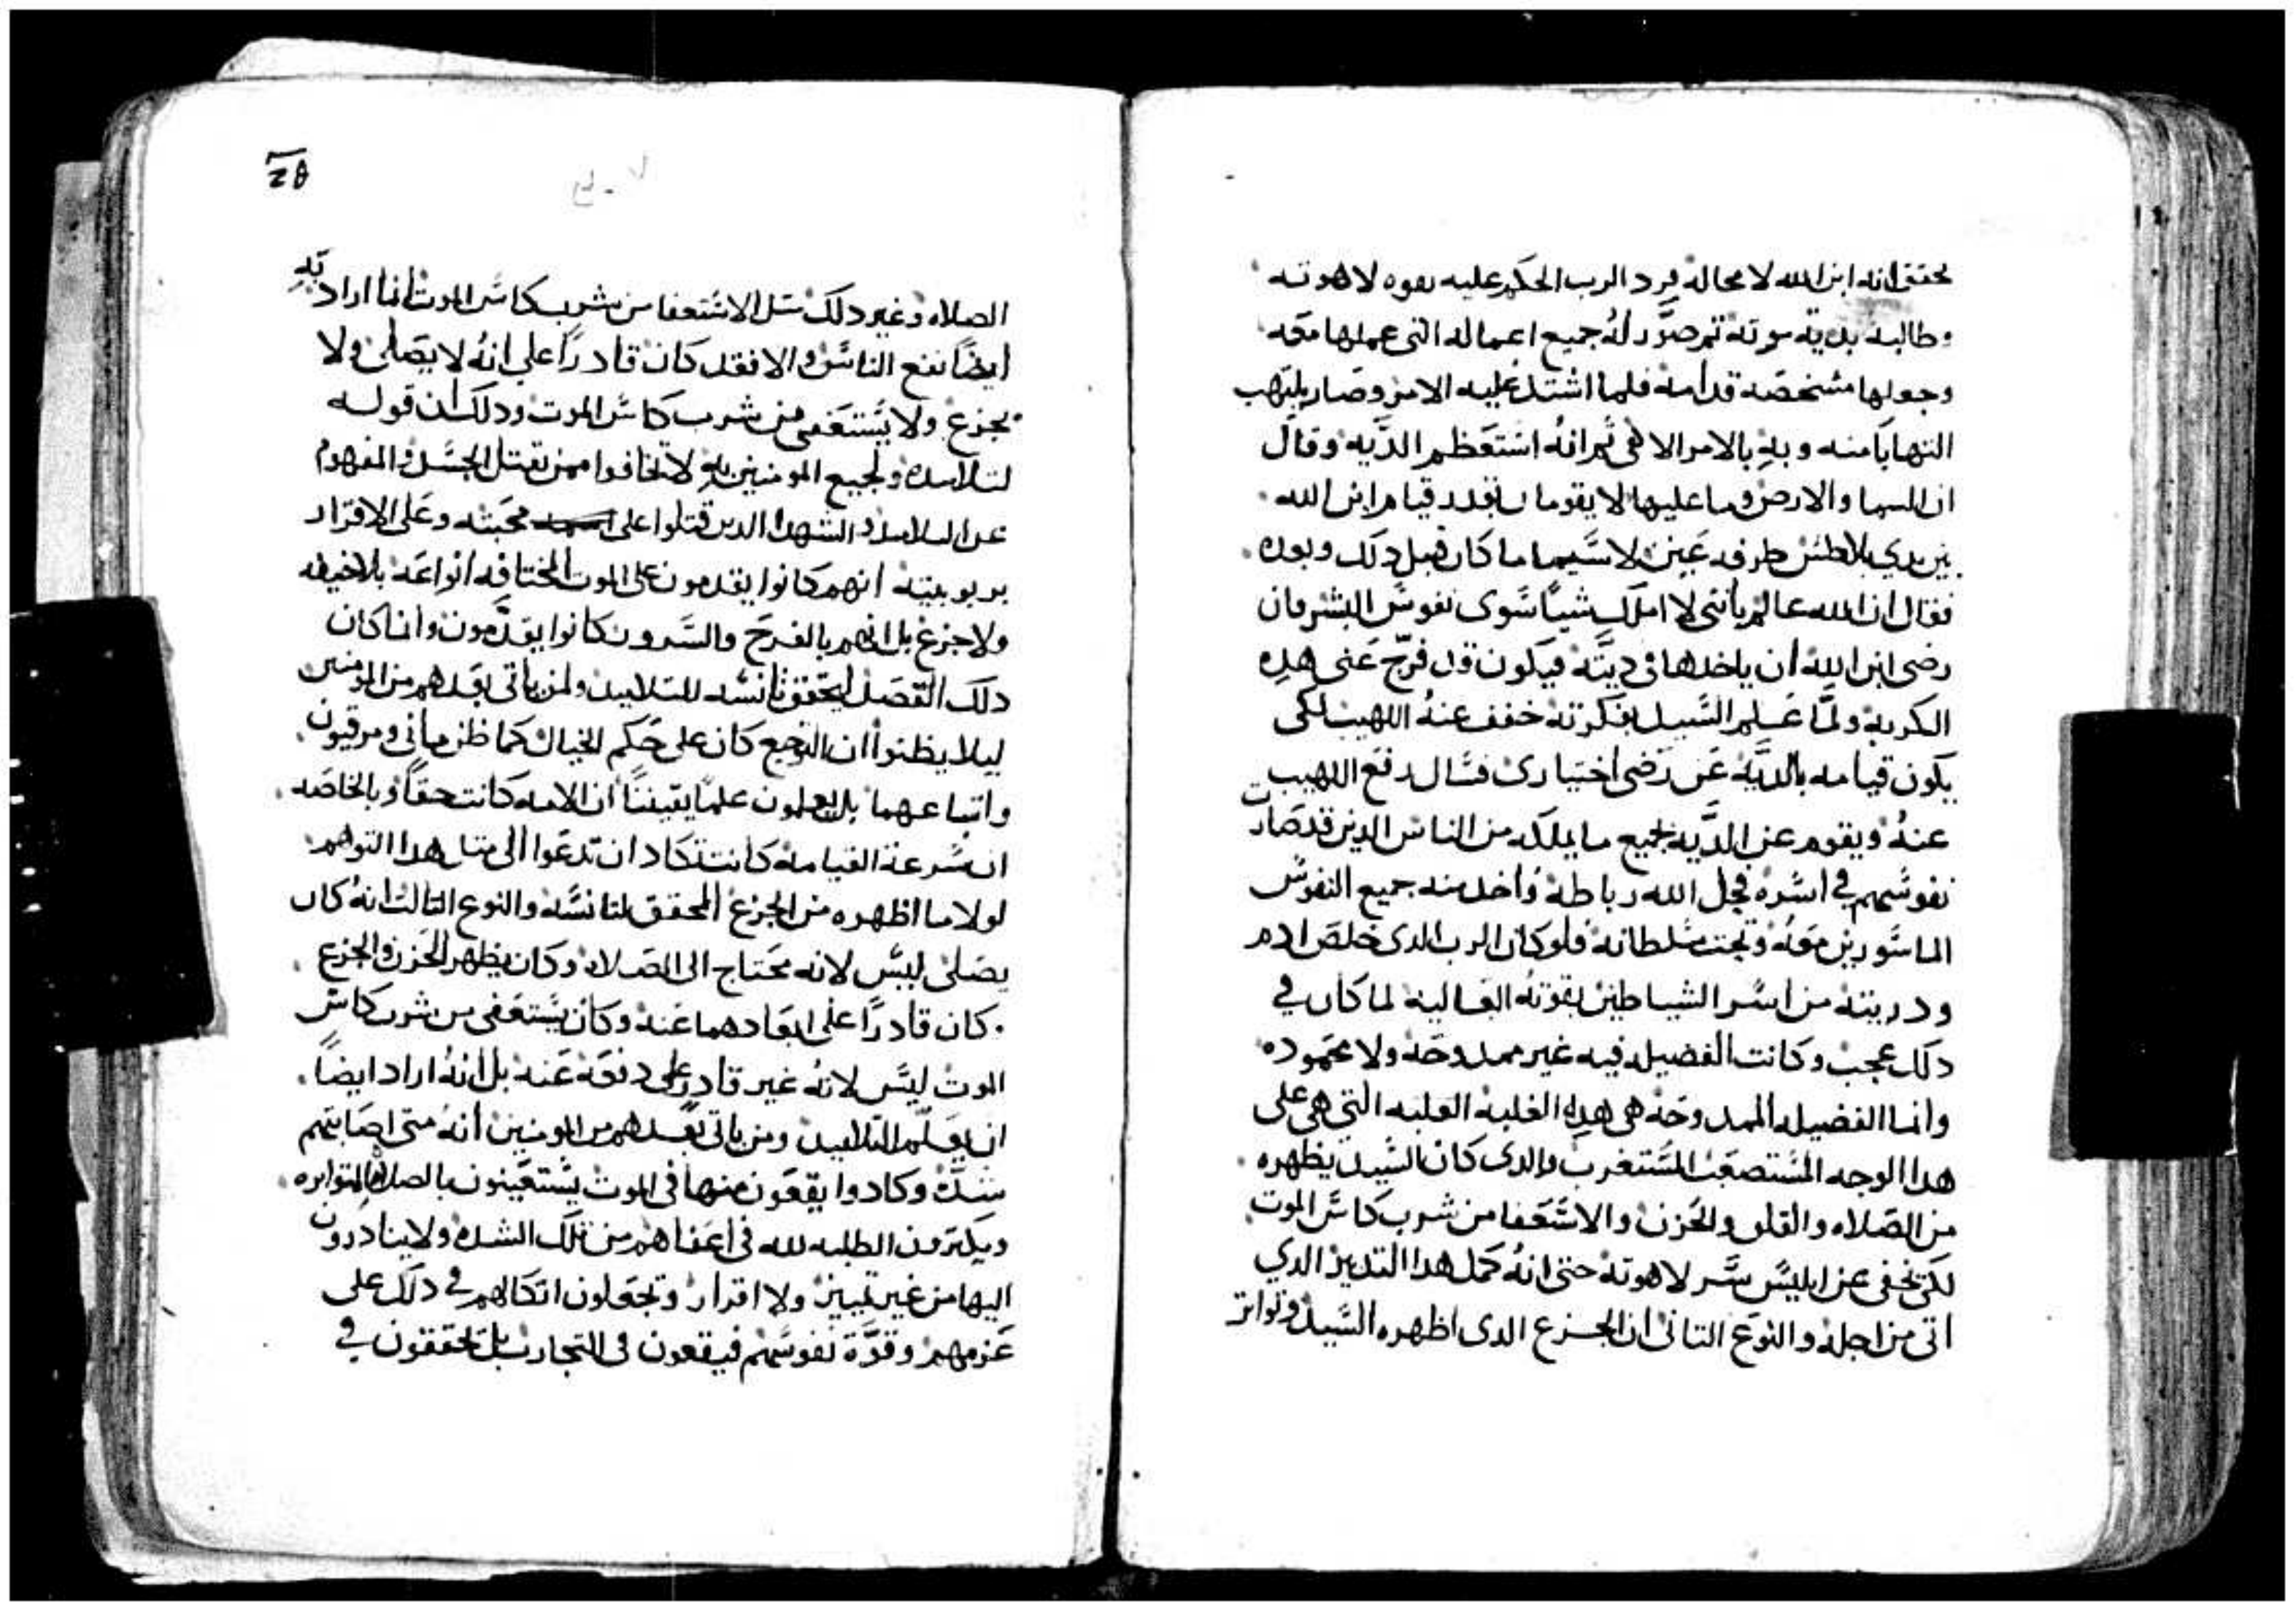 تحقق انه ابن الله لا محاله فرد الرب الحكم عليه بقوه لاهوته
وطالبه بدية موته ثم صور له جميع اعماله التى عملها معه
وجعلها مشخصه قدامه فلما اشتد عليه الامر وصار يلتهب
التهابا منه وبه بالامر الالاهى ثم انه استعظم الديه وقال
ان السما والارض وما عليها لا يقومان بقدر قيام ابن الله
بين يدي بلاطس طرفه عين لاسيما ما كان قبل دلك وبعده
فقال ان الله عالم بانى لا املك شيا سوى نفوس البشر فان
رضى ابن الله ان ياخدها فى ديته فيكون قد فرج عنى هده
الكربه ولما علم السيد بفكرته خفف عنه اللهيب لكى
يكون قيامه بالديه عن رضى اختيارى فسال رفع اللهيب
عنه ويقوم عن الديه بجميع ما يملكه من الناس الدين قد صارت
نفوسهم في اسره فحل الله رباطه واخد منه جميع النفوس
الماسورين معه وتحت سلطانه فلو كان الرب الدى خلص ادم
ودريته من اسر الشياطين بقوته الغالبه لما كان في
دلك عجب وكانت الفضيله فيه غير ممدوحه ولا محموده
وانما الفضيله الممدوحه هى هده الغلبه التى هى على
هدا الوجه المستصعب المستغرب والدى كان السيد يظهره
من الصلاه والقلق والحزن والاستعفا من شرب كاس الموت
لكى يخفى عن ابليس سر لاهوته حتى انه كمل هدا التدبير الدي
اتى من اجله والنوع التانى ان الجزع الدى اظهره السيد وتواتر
الصلاه وغير دلك متل الاستعفا من شرب كاس الموت انما اراد به
ايضا نفع الناس والا فقد كان قادرا على انه لا يصلى ولا
يجزع ولا يستعفى من شرب كاس الموت ودلك ان قوله
لتلاميده ولجميع المومنين به لا تخافوا ممن يقتل الجسد والمفهوم
عن التلاميد والشهدا الدين قتلوا على محبته وعلى الاقرار
بربوبيته انهم كانوا يقدمون على الموت المختلفه انواعه بلا خيفه
ولا جزع بل انهم بالفرح والسرور كانوا يقدمون وانما كان
دلك القصد ليحقق تانسه للتلاميد ولمن ياتى بعدهم من المومنين
ليلا يظنوا ان التوجع كان على حكم الخيال كما ظن مانى ومرقيون
واتباعهما بل يعلمون علما يقيننا ان الامه كانت حقا وبالخاصه
ان سرعة القيامه كانت تكاد ان تدعوا الى متل هدا التوهم
لولا ما اظهره من الجزع المحقق لتانسه والنوع التالت انه كان
يصلى ليس لانه محتاج الى الصلاه وكان يظهر الحزن والجزع
كان قادرا على ابعادهما عنه وكان يستعفى من شرب كاس
الموت ليس لانه غير قادر على دفعه عنه بل انه اراد ايضا
ان يعلم التلاميد ومن ياتى بعدهم من المومنين انه متى اصابتهم
شده وكادوا يقعون منها فى الموت يستعينون بالصلاه المتواتره
ويكترون الطلبه لله فى اعفاهم من تلك الشده ولا يبادرون
اليها من غير تمييز ولا اقرار وتجعلون اتكالهم في دلك على
عزمهم وقوة نفوسهم فيقعون فى التجارب بل تحققون في